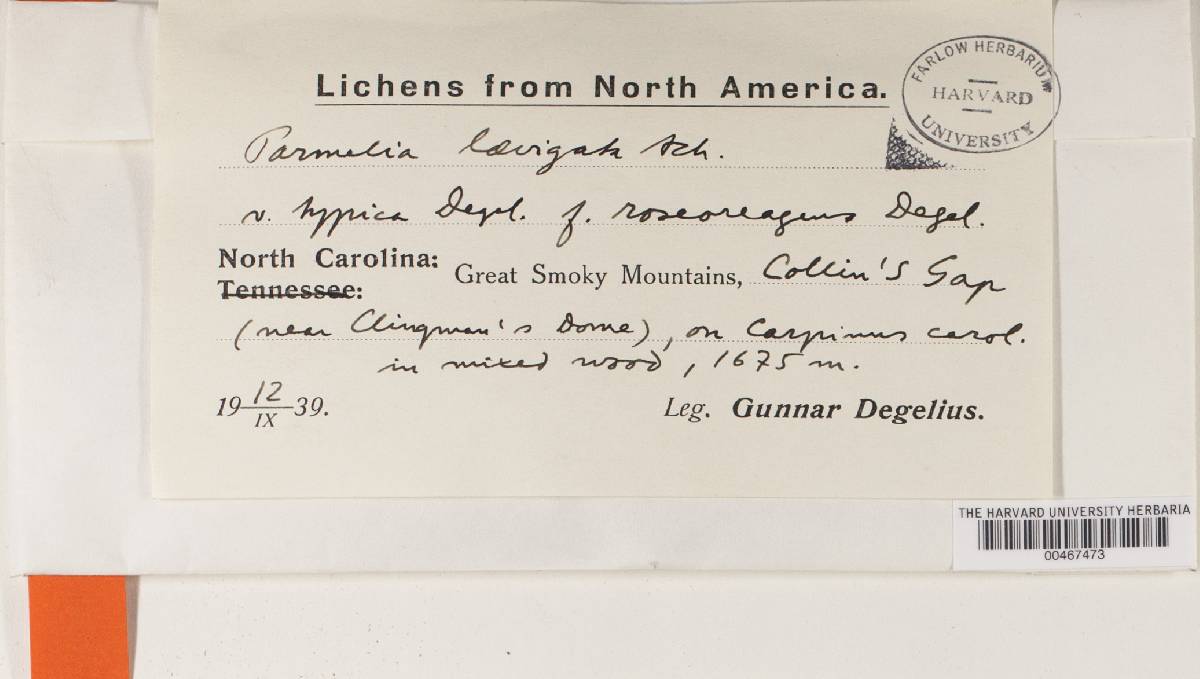 Lichens from North America.
FARLOW HERBARIUM
HARVARD
UNIVERSITY
Parmelia lævigata Ach.
v. typica Degel. f. roseoreagens Degel.
North Carolina:
Tennessee:
Great Smoky Mountains, Collin's Gap
(near Clingman's Dome), on Carpinus carol.
in mixed wood, 1675 m.
19 12/IX 39.
Leg. Gunnar Degelius.
THE HARVARD UNIVERSITY HERBARIA
00467473